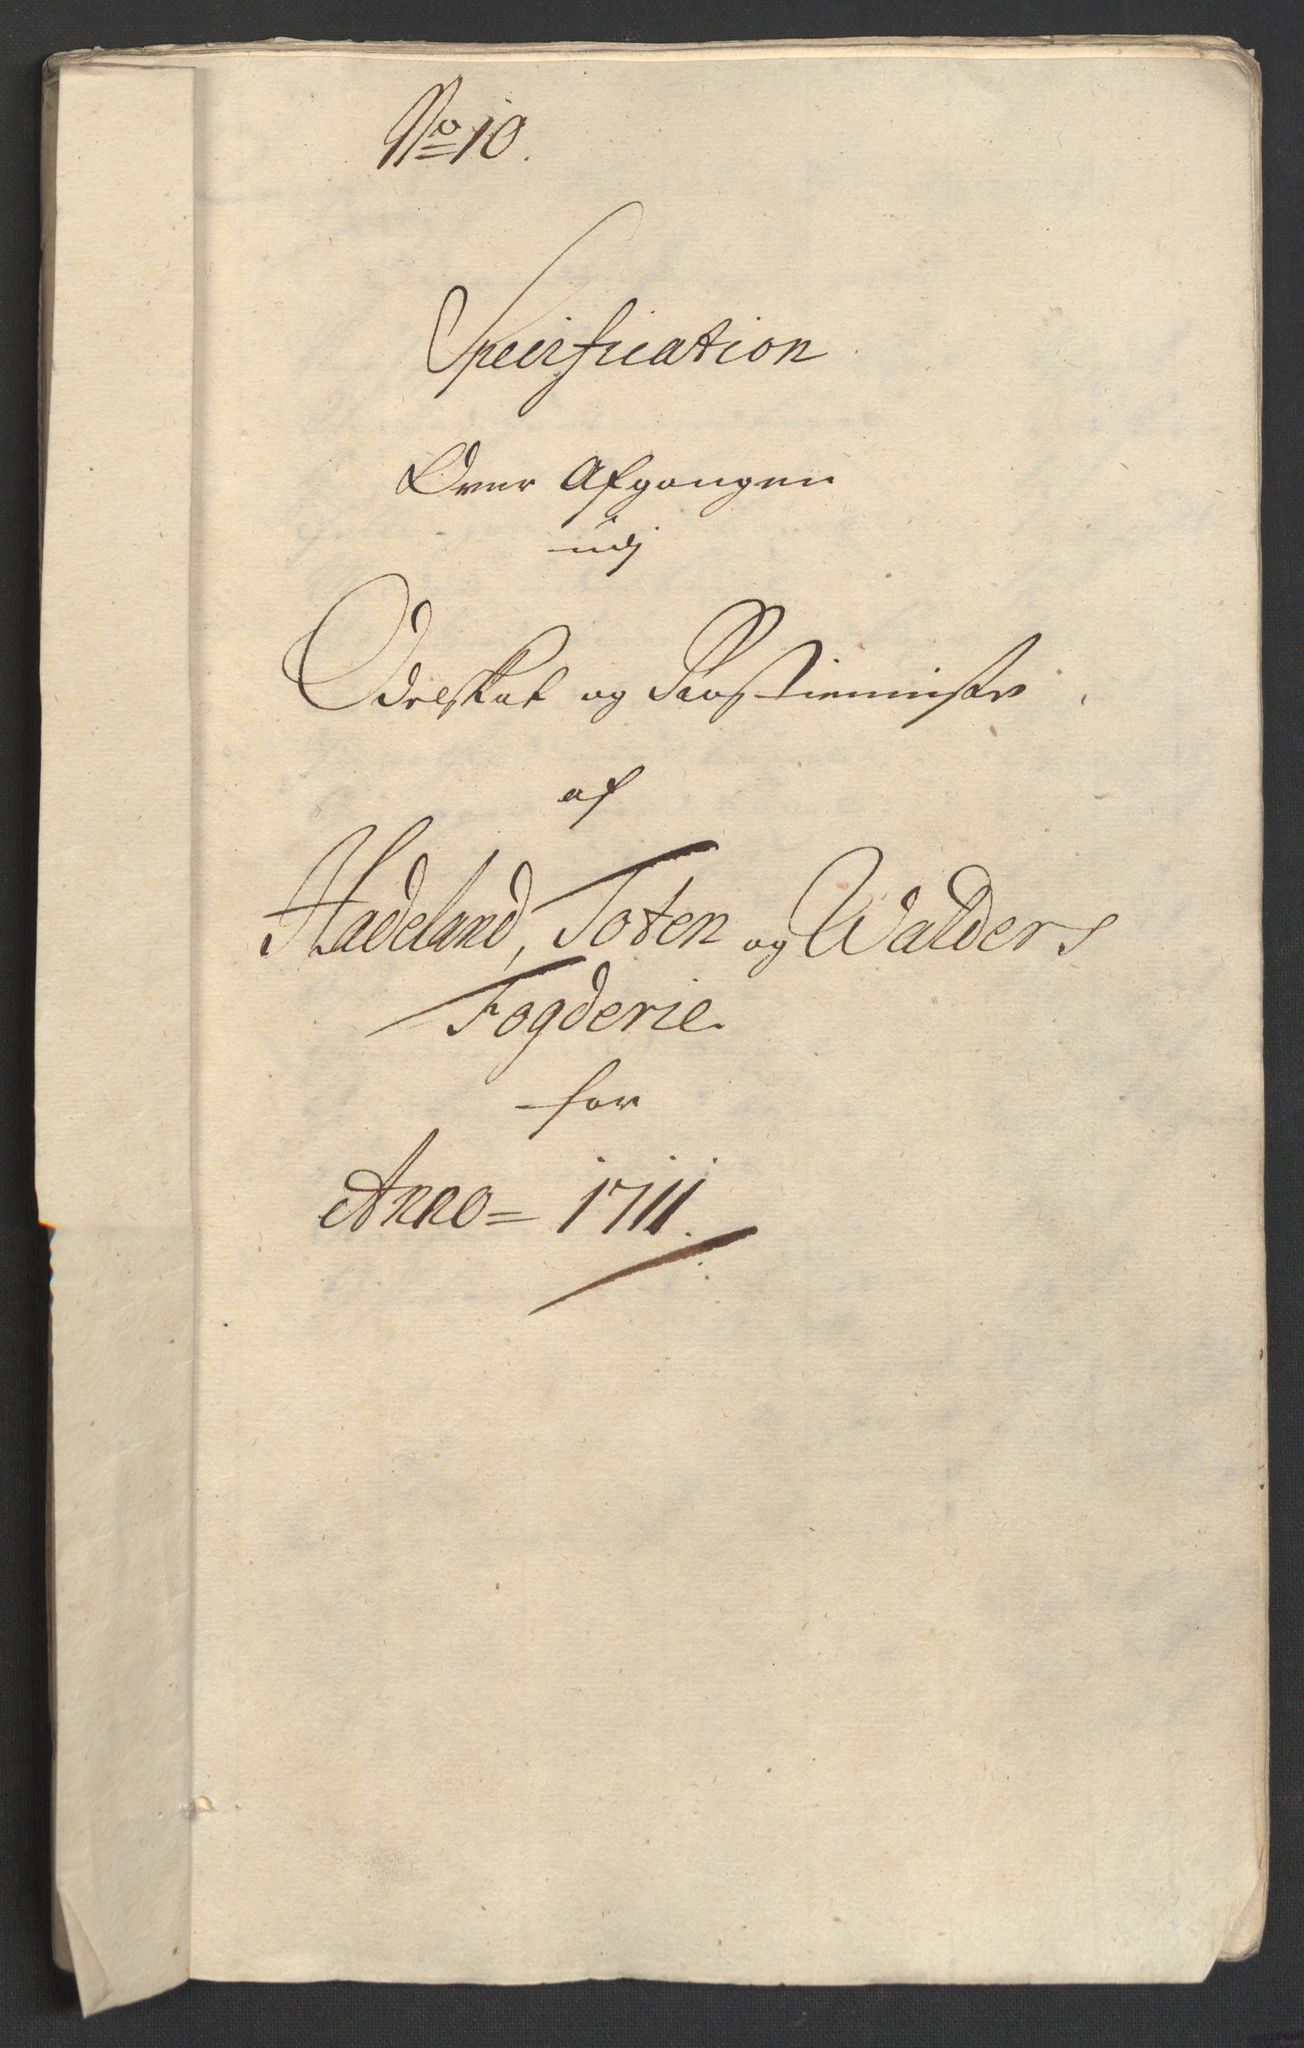 No 10.
Specification
Over Afgangen
udj
Odelskat og Rostienniste
af
Hadeland, Toten og Walders
Fogderie.
for
Anno = 1711.